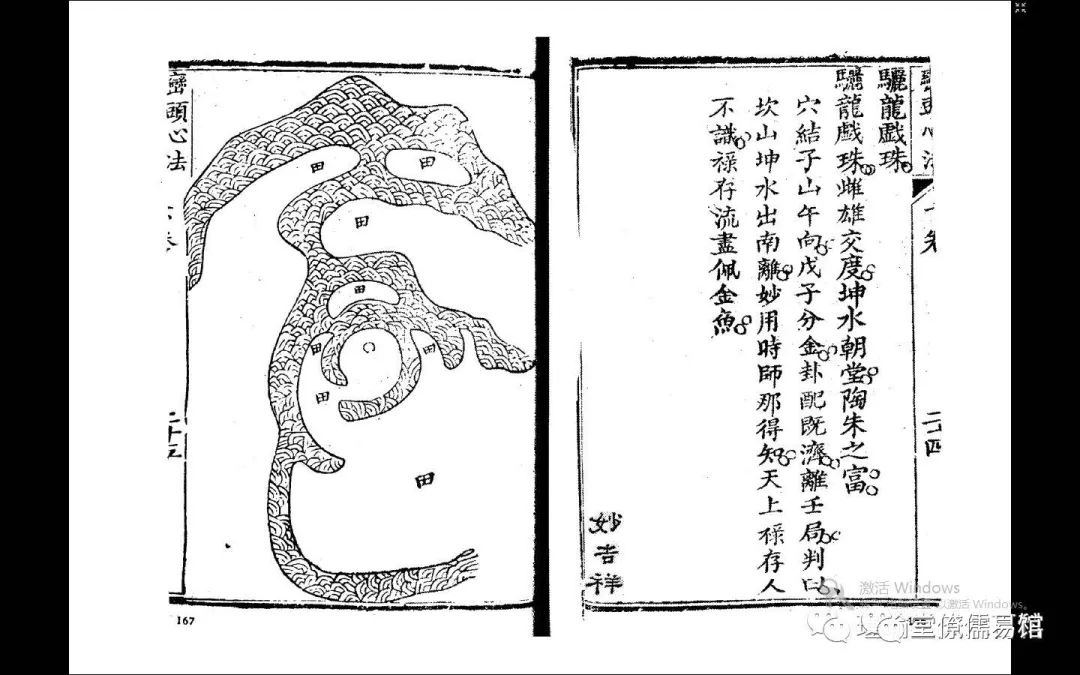 驪龍戲珠
驪龍戲珠雌雄交度坤水朝堂陶朱之富
穴結子山午向戊子分金卦配既濟離壬局判曰
坎山坤水出南離妙用時師那得知天上祿存人
不識祿存流盡佩金魚
妙吉祥
二十四
田
田
田
田
田
田
田
田
巒頭心法
卷
二十五
167
激活 Windows
以激活 Windows。
堂僚儒易馆